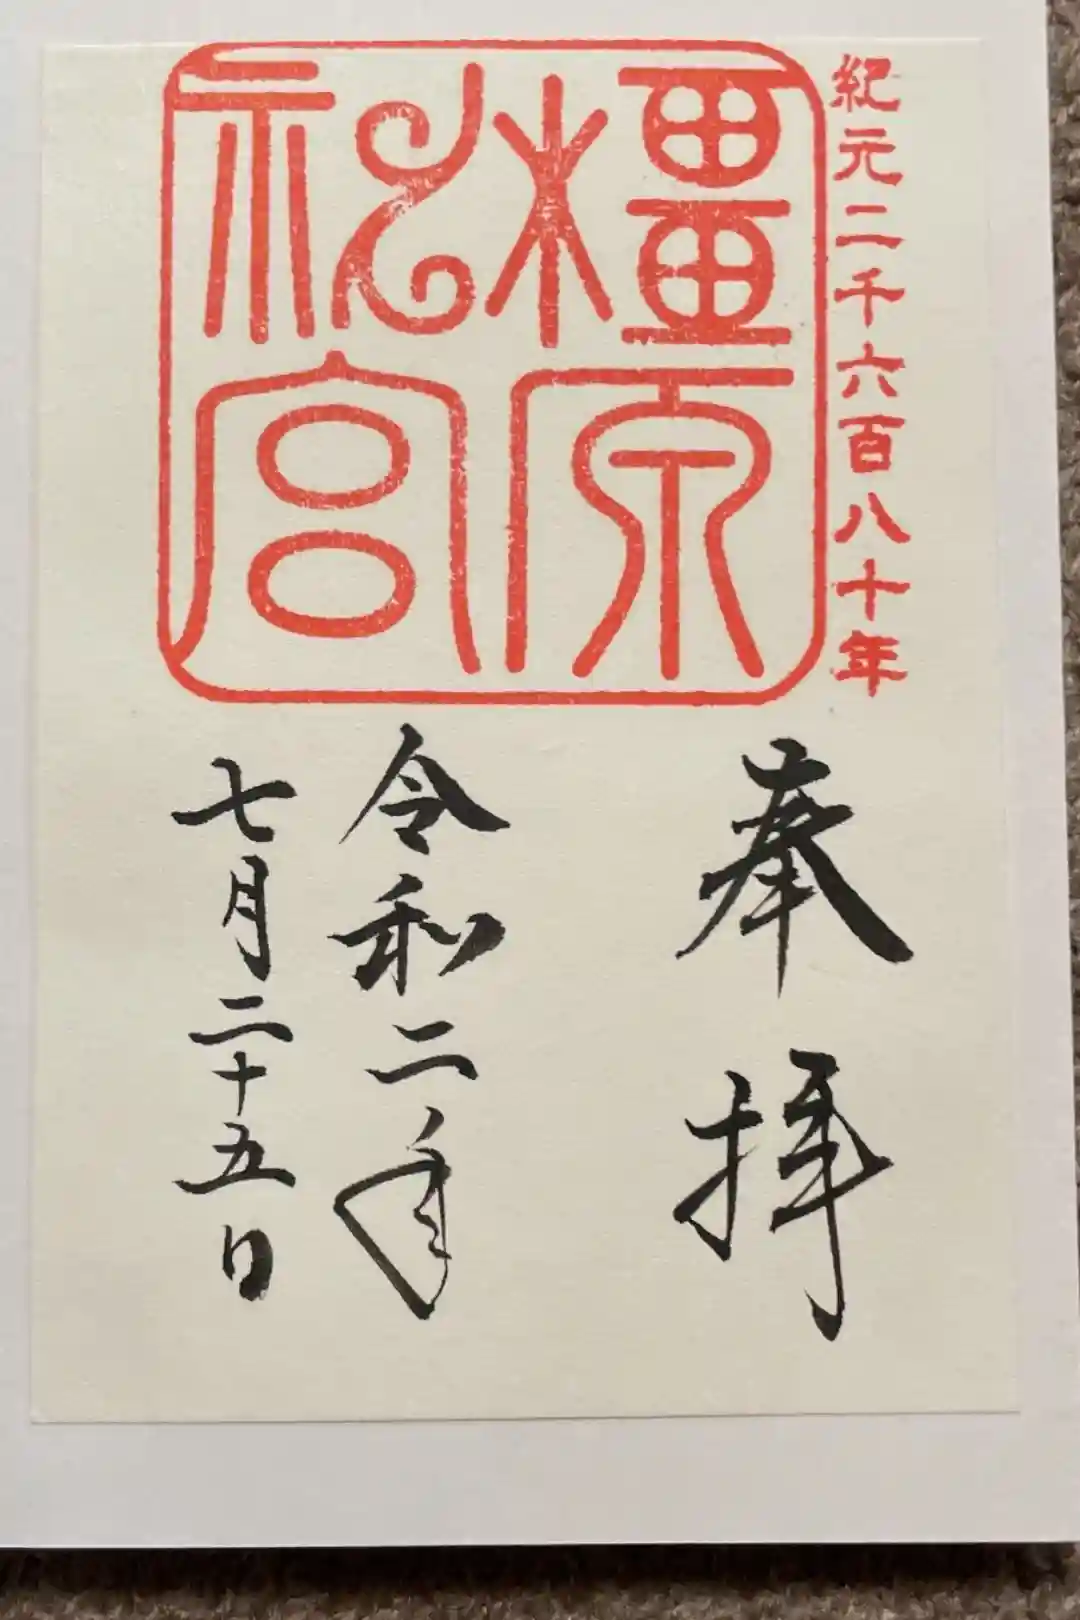 紀元二千六百八十年
橿原
神宮
奉拝
令和二年
七月二十五日